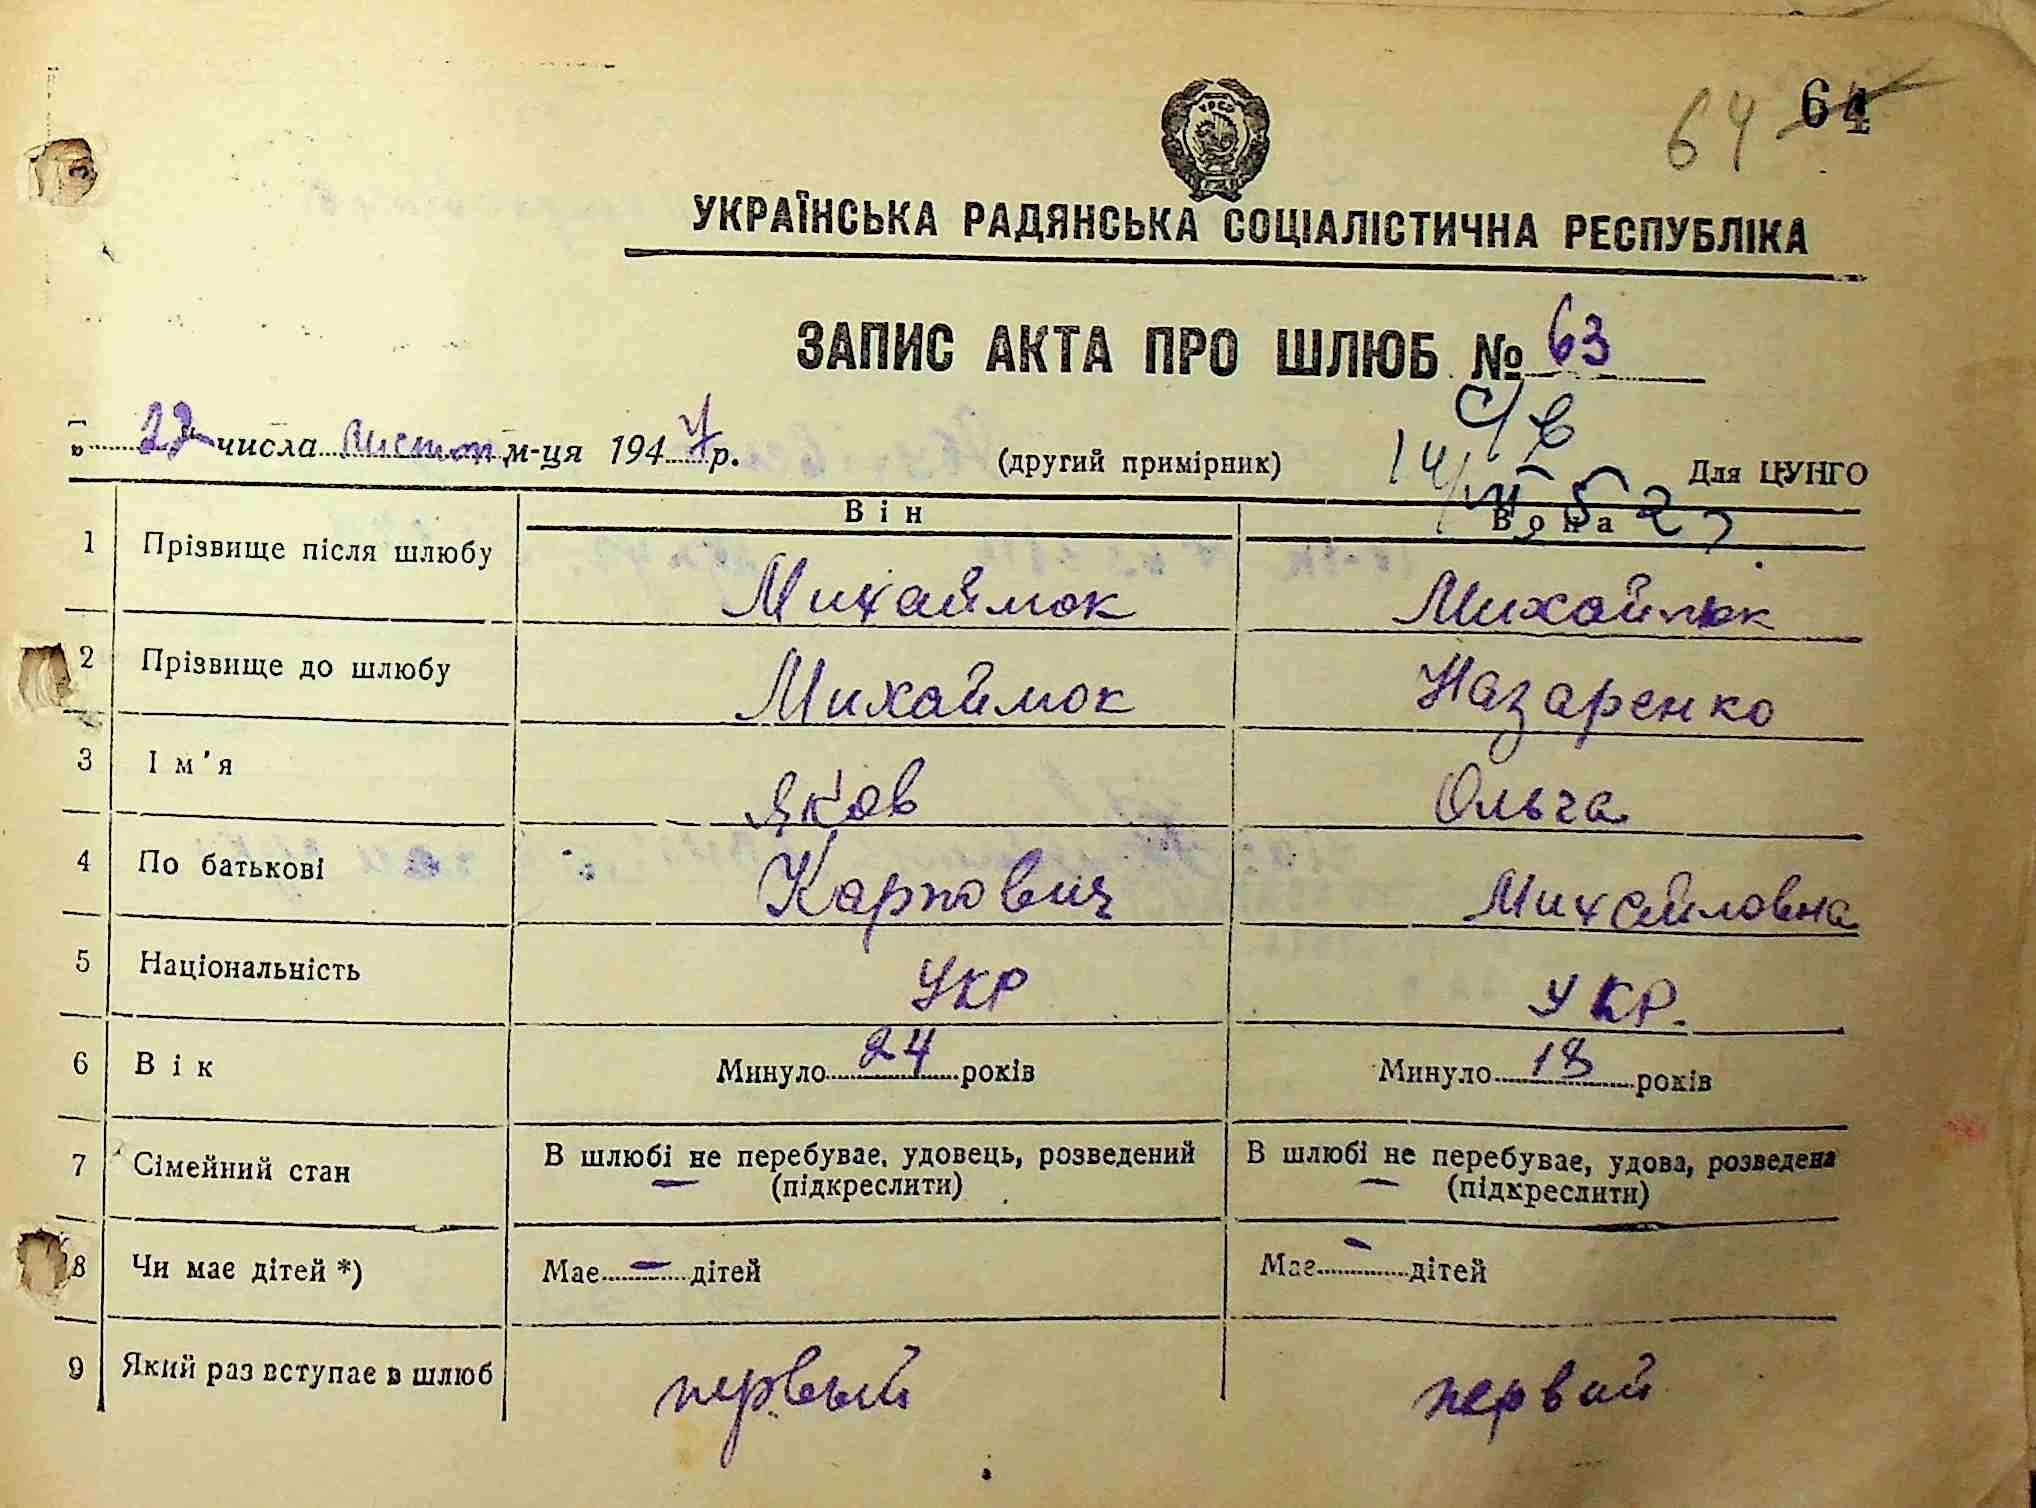 64 64
УКРАЇНСЬКА РАДЯНСЬКА СОЦІАЛІСТИЧНА РЕСПУБЛІКА
ЗАПИС АКТА ПРО ШЛЮБ № 63
числа листоп м-ця 1947 р. (другий примірник) Для ЦУНГО
Він Вона
1 Прізвище після шлюбу Михайлюк Михайлюк
2 Прізвище до шлюбу Михайлюк Назаренко
3 Ім'я Яков Ольга
4 По батькові Карпович Михайловна
5 Національність УКР УКР.
6 Вік Минуло 24 років Минуло 18 років
7 Сімейний стан В шлюбі не перебуває, удовець, розведений В шлюбі не перебуває, удова, розведена
(підкреслити) (підкреслити)
8 Чи має дітей *) Має — дітей Має — дітей
9 Який раз вступає в шлюб первый первий